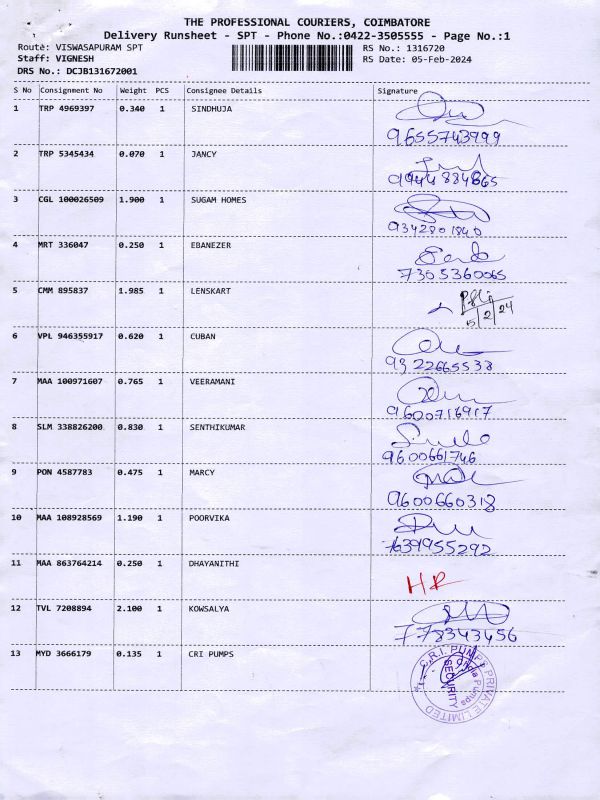 THE PROFESSIONAL COURIERS, COIMBATORE
Delivery Runsheet - SPT - Phone No.:0422-3505555 - Page No.:1
Route: VISWASAPURAM SPT RS No.: 1316720
Staff: VIGNESH RS Date: 05-Feb-2024
DRS No.: DCJB131672001
S No Consignment No Weight PCS Consignee Details Signature
1 TRP 4969397 0.340 1 SINDHUJA
9655743999
2 TRP 5345434 0.070 1 JANCY
9944884865
3 CGL 100026509 1.900 1 SUGAM HOMES
9342801840
4 MRT 336047 0.250 1 EBANEZER
7305360065
5 CMM 895837 1.985 1 LENSKART
5/2/24
6 VPL 946355917 0.620 1 CUBAN
9322665538
7 MAA 100971607 0.765 1 VEERAMANI
9600716917
8 SLM 338826200 0.830 1 SENTHIKUMAR
9600661746
9 PON 4587783 0.475 1 MARCY
9600660318
10 MAA 108928569 1.190 1 POORVIKA
7639955292
11 MAA 863764214 0.250 1 DHAYANITHI
HR
12 TVL 7208894 2.100 1 KOWSALYA
778343456
13 MYD 3666179 0.135 1 CRI PUMPS
C.R.I. PUMPS PRIVATE LIMITED
SECURITY